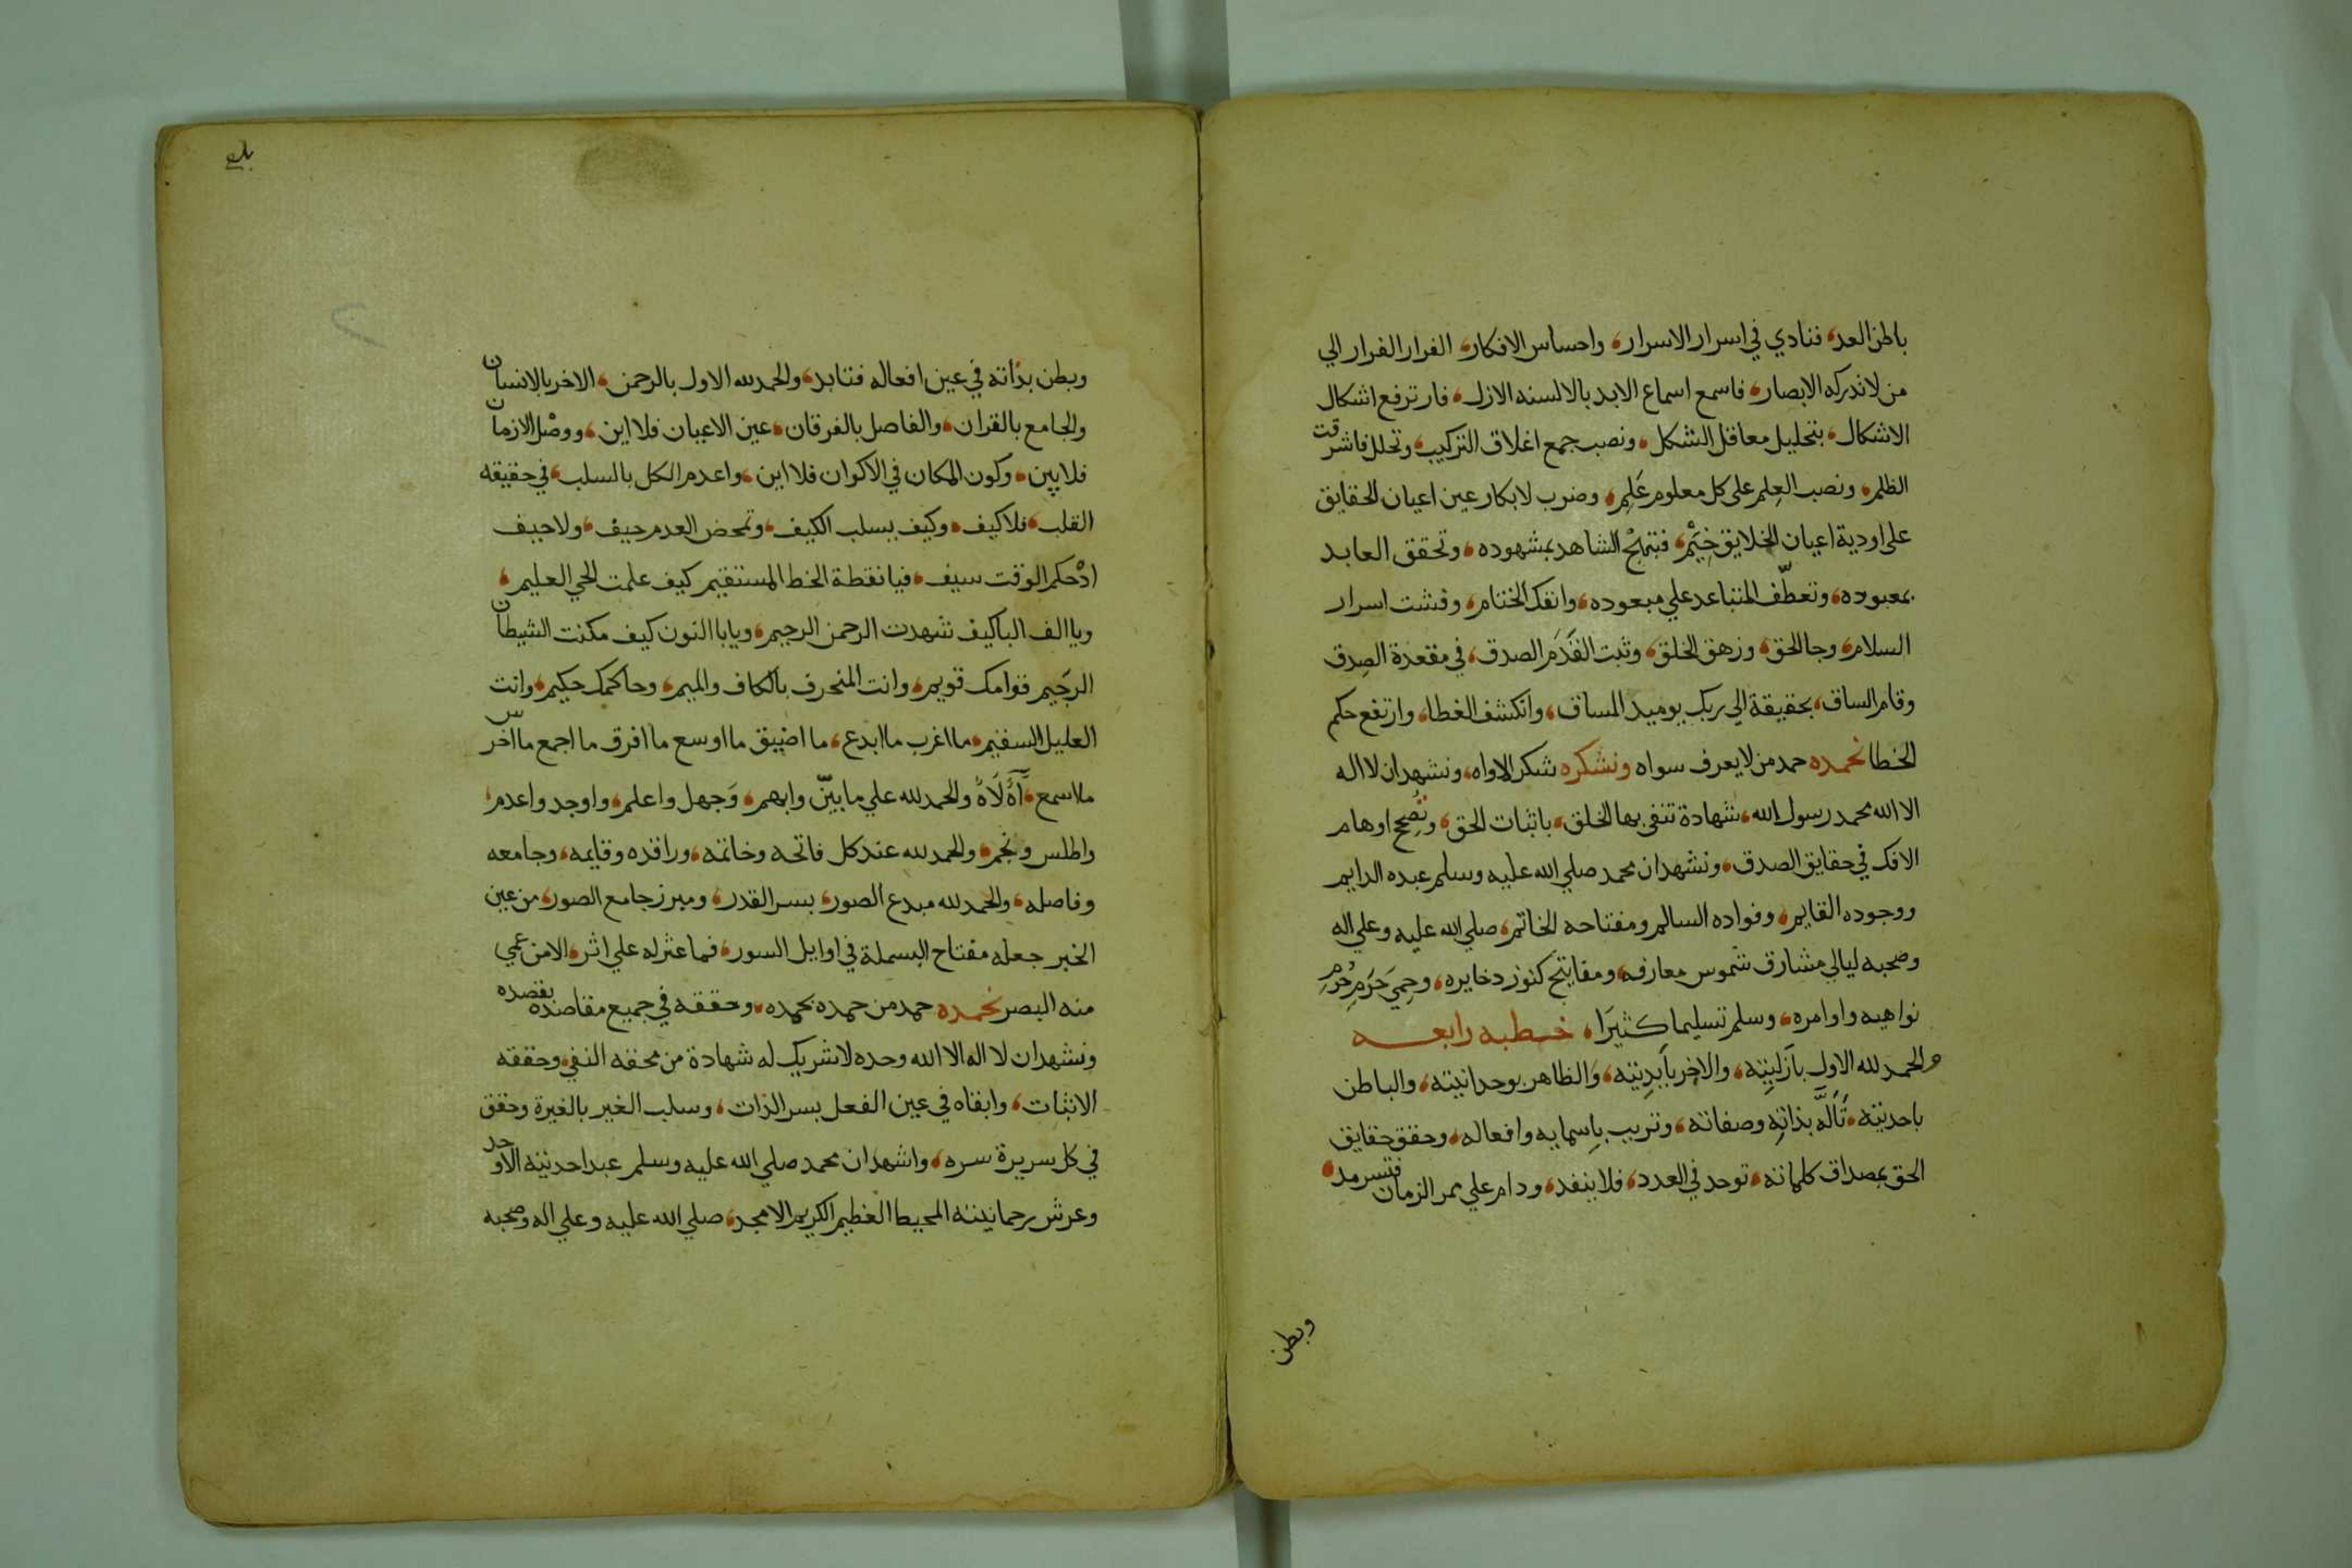 باطن العد، فنادي في اسرار الاسرار، واحساس الافكار، الفرار الفرار الي
من لا تدركه الابصار، فاسمع اسماع الابد بالالسنه الازل، فارترفع اشكال
الاشكال، بتحليل معاقل الشكل، ونصب جمع اغلاق التركيب، وتحلل فاشرقت
الظلم، ونصب العِلم على كل معلوم عَلم، وضرب لابكار عين اعيان الحقايق
على اودية اعيان الخلايق خِيَم، فتبهج الشاهد بمشهوده، وتحقق العابد
بمعبوده، وتعطّف المتباعد علي مبعوده، وانفك الختام، وفشت اسرار
السلام، وجا الحق، وزهق الخلق، وثبت القَدَم الصدق، في مقعدة الصِدق
وقام الساق، بحقيقة الي ربك يوميد المساق، وانكشف الغطا، وارتفع حكم
الخطا نحمده حمد من لا يعرف سواه ونشكره شكر الاواه، ونشهد ان لا اله
الا الله محمد رسول الله، شهادة تنفي بها الخلق، باثبات الحق، وتُصِح اوهام
الافك في حقايق الصدق، ونشهد ان محمد صلي الله عليه وسلم عبده الدايم
ووجوده القايم، وفواده السالم ومفتاحه الخاتم، صلي الله عليه وعلي اله
وصحبه ليالي مشارق شموس معارفه، ومفاتيح كنوز دخايره، وحِمي حَرَمِ حُرُمِ
نواهيه واوامره، وسلم تسليما كثيرَا، خطبه رابعه
والحمد لله الاول بآزليتِه، والاخِر بآبدِيتِه، وَالظاهر بوحدانيته، والباطن
باحديته، تَأَلَّهَ بذاتِه وصفاته، وتربب باِسمايه وافعاله، وحقق حقايق
الحق بمصداق كلماته، توحد في العدد، فلا ينفد، ودام علي ممر الزمان فتسرمد،
وبطن
وبطن بذاته في عين افعاله فتابد، والحمد لله الاول بالرحمن، الاخر بالانسان
والجامع بالقران، والفاصل بالفرقان، عين الاعيان فلا اين، ووصْل الازمان
فلا بين، وكون المكان في الاكوان فلا اين، واعدم الكل بالسلب، في حقيقه
القلب، فلا كيف، وكيف بسلب الكيف، وتمحض العدم حيف، ولا حيف
اذْ حكم الوقت سيف، فيا نقطة الخط المستقيم كيف علمت الحي العليم،
ويا الف البا كيف شهدت الرحمن الرحيم، ويا با النون كيف مكنت الشيطان
الرجَيم فقوامك قويم، وانت المنحرف بالكاف والميم، وحاكمك حكيم، وانت
العليل السقيم، ما اغرب ما ابدع، ما اضيق ما اوسع ما افرق ما اجمع ما اخرس
ما اسمع، والحمد لله علي ما بيّن وابهم، وَجهل واعلم، واوجد واعدم،
واطلس ونجم، والحمد لله عند كل فاتحه وخاتمه، وراقده وقايمه، وجامعه
وفاصله، والحمد لله مبدع الصور، بسر القدر، ومبرز جامع الصور، من عين
الخبر جعله مفتاح البسملة في اوايل السور، فما عثر له علي اثر، الا من عمي
منه البصر نحمده حمد من حمده بحمده، وحققه في جميع مقاصده بقصده
ونشهد ان لا اله الا الله وحده لا شريك له شهادة من محقه النفي، وحققه
الاثبات، وابقاه في عين الفعل بسر الذات، وسلب الغير بالغيرة وحقق
في كل سريرة سره، واشهد ان محمد صلي الله عليه وسلم عبد احديته الاوحد
وعرش رحمانيته المحيط العظيم الكريم الامجد، صلي الله عليه وعلي اله وصحبه